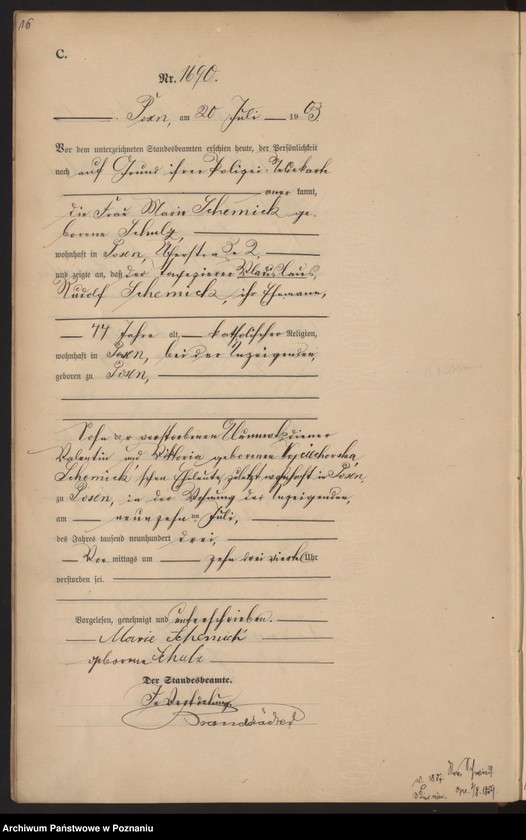 16
C.
Nr. 1690.
Posen, am 20 Juli 1903.
Vor dem unterzeichneten Standesbeamten erschien heute, der Persönlichkeit
nach auf Grund ihrer Polizei-Meldekarte
kannt,
die Frau Marie Schemick ge-
borene Schulz,
wohnhaft in Posen, 2,
und zeigte an, daß der Tapezierer
Rudolf Schemick, ihr Ehemann,
44 Jahre alt, katholischer Religion,
wohnhaft in Posen, bei der Anzeigenden,
geboren zu Posen,
Sohn der verstorbenen
Valentin und Viktoria geborenen Wojciechowska,
Schemick'schen Eheleute, zuletzt wohnhaft in Posen,
zu Posen, in der Wohnung der Anzeigenden,
am neunzehnten Juli,
des Jahres tausend neunhundert drei,
Vor mittags um zehn drei viertel Uhr
verstorben sei.
Vorgelesen, genehmigt und unterschrieben.
Marie Schemick
geborene Schulz
Der Standesbeamte.
In Vertretung.
Brandstädter
Archiwum Państwowe w Poznaniu